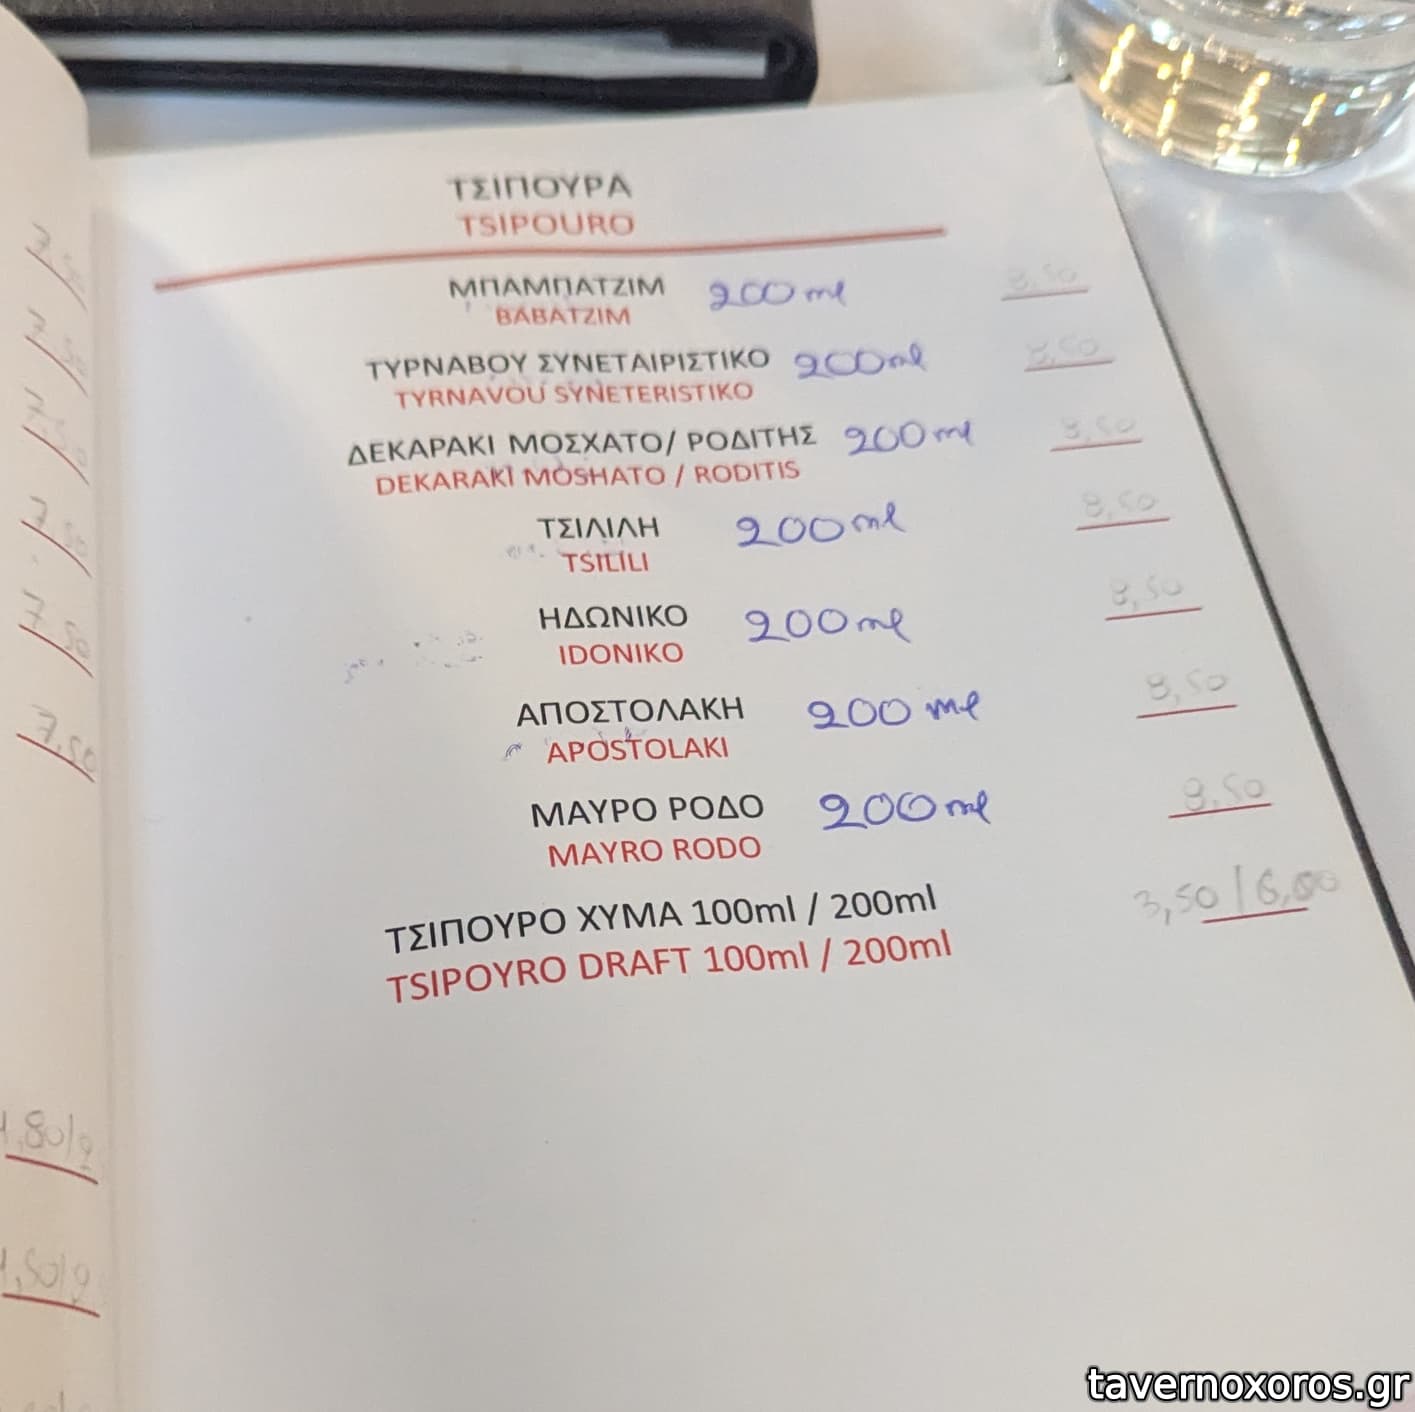 ΤΣΙΠΟΥΡΑ
TSIPOURO
ΜΠΑΜΠΑΤΖΙΜ 200 ml 8,50
BABATZIM
ΤΥΡΝΑΒΟΥ ΣΥΝΕΤΑΙΡΙΣΤΙΚΟ 200ml 8,50
TYRNAVOU SYNETERISTIKO
ΔΕΚΑΡΑΚΙ ΜΟΣΧΑΤΟ/ ΡΟΔΙΤΗΣ 200ml 8,50
DEKARAKI MOSHATO / RODITIS
ΤΣΙΛΙΛΗ 200ml 8,50
TSILILI
ΗΔΩΝΙΚΟ 200ml 8,50
IDONIKO
ΑΠΟΣΤΟΛΑΚΗ 200 ml 8,50
APOSTOLAKI
ΜΑΥΡΟ ΡΟΔΟ 200ml 8,50
MAYRO RODO
ΤΣΙΠΟΥΡΟ ΧΥΜΑ 100ml / 200ml 3,50 / 6,00
TSIPOYRO DRAFT 100ml / 200ml
7,50
7,50
7,50
7,50
7,50
7,50
tavernoxoros.gr